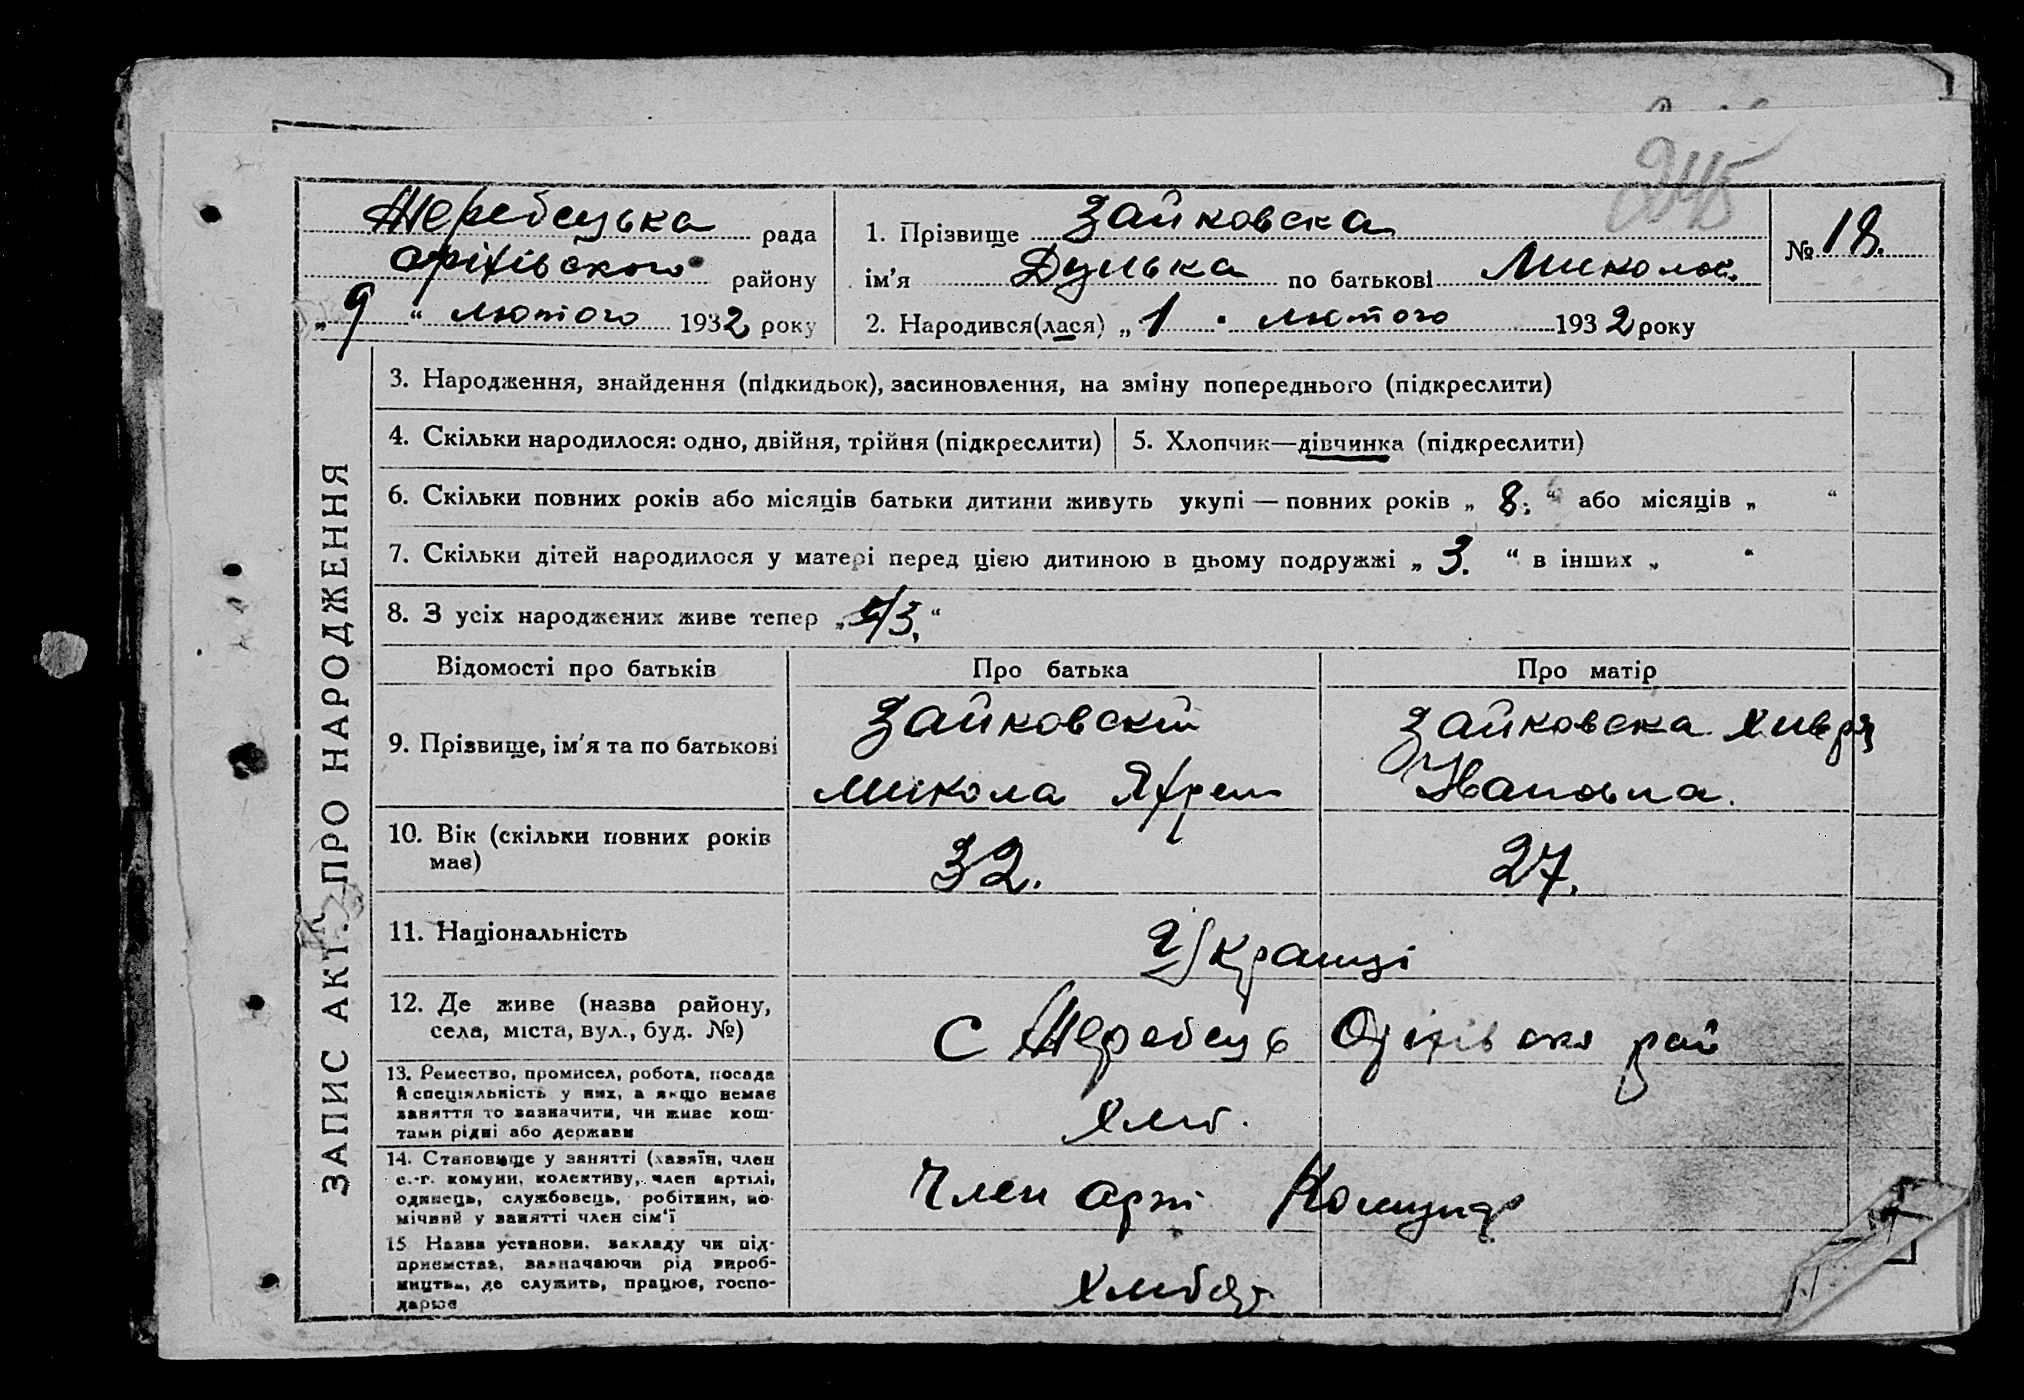 245
Жеребецька рада
Оріхівського району
„ 9 “ лютого 1932 року
1. Прізвище Зайковска
ім’я Дунька по батькові Микола.
2. Народився(лася) „ 1 “ лютого 1932 року
№ 18.
ЗАПИС АКТ. ПРО НАРОДЖЕННЯ
3. Народження, знайдення (підкидьок), засиновлення, на зміну попереднього (підкреслити)
4. Скільки народилося: одно, двійня, трійня (підкреслити)
5. Хлопчик—дівчинка (підкреслити)
6. Скільки повних років або місяців батьки дитини живуть укупі — повних років „ 8. “ або місяців „ “
7. Скільки дітей народилося у матері перед цією дитиною в цьому подружжі „ 3. “ в інших „ “
8. З усіх народжених живе тепер „ /3. “
Відомості про батьків
Про батька
Про матір
9. Прізвище, ім’я та по батькові
Зайковскій
Микола Яхрем
Зайковска Хивря
Ивановна.
10. Вік (скільки повних років
має)
32.
27.
11. Національність
Украинці
12. Де живе (назва району,
села, міста, вул., буд. №)
с Жеребець Оріхівско рай
13. Ремество, промисел, робота, посада
й спеціяльність у них, а якщо немає
заняття то зазначити, чи живе кош-
тами рідні або держави
Хліб.
14. Становище у занятті (хазяїн, член
с.-г. комуни, колективу, член артілі,
одинець, службовець, робітник, по-
мічний у занятті член сім’ї
Член арті Комунар
15 Назва установи, закладу чи під-
приємства, зазначаючи рід вироб-
ництва, де служить, працює, госпо-
дарює